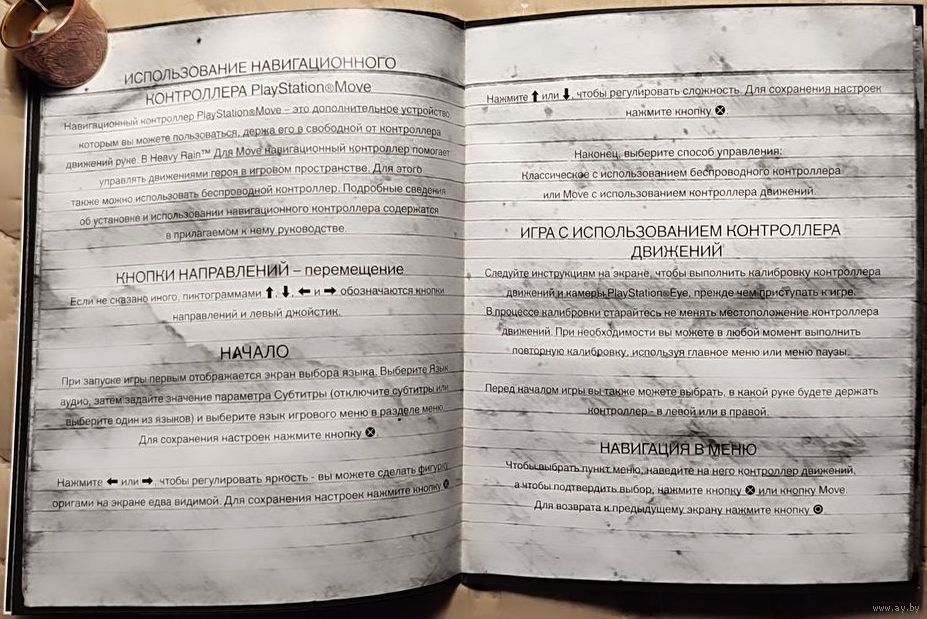 ИСПОЛЬЗОВАНИЕ НАВИГАЦИОННОГО
КОНТРОЛЛЕРА PlayStation®Move
Навигационный контроллер PlayStation®Move – это дополнительное устройство,
которым вы можете пользоваться, держа его в свободной от контроллера
движений руке. В Heavy Rain™ Для Move навигационный контроллер помогает
управлять движениями героя в игровом пространстве. Для этого
также можно использовать беспроводной контроллер. Подробные сведения
об установке и использовании навигационного контроллера содержатся
в прилагаемом к нему руководстве.
КНОПКИ НАПРАВЛЕНИЙ – перемещение
Если не сказано иного, пиктограммами ⬆, ⬇, ⬅ и ➡ обозначаются кнопки
направлений и левый джойстик.
НАЧАЛО
При запуске игры первым отображается экран выбора языка. Выберите Язык
аудио, затем задайте значение параметра Субтитры (отключите субтитры или
выберите один из языков) и выберите язык игрового меню в разделе меню.
Для сохранения настроек нажмите кнопку ⊗.
Нажмите ⬅ или ➡, чтобы регулировать яркость - вы можете сделать фигурку
оригами на экране едва видимой. Для сохранения настроек нажмите кнопку ⊗
Нажмите ⬆ или ⬇, чтобы регулировать сложность. Для сохранения настроек
нажмите кнопку ⊗.
Наконец, выберите способ управления:
Классическое с использованием беспроводного контроллера
или Move с использованием контроллера движений.
ИГРА С ИСПОЛЬЗОВАНИЕМ КОНТРОЛЛЕРА
ДВИЖЕНИЙ
Следуйте инструкциям на экране, чтобы выполнить калибровку контроллера
движений и камеры PlayStation®Eye, прежде чем приступать к игре.
В процессе калибровки старайтесь не менять местоположение контроллера
движений. При необходимости вы можете в любой момент выполнить
повторную калибровку, используя главное меню или меню паузы.
Перед началом игры вы также можете выбрать, в какой руке будете держать
контроллер - в левой или в правой.
НАВИГАЦИЯ В МЕНЮ
Чтобы выбрать пункт меню, наведите на него контроллер движений,
а чтобы подтвердить выбор, нажмите кнопку ⊗ или кнопку Move.
Для возврата к предыдущему экрану нажмите кнопку ◎.
www.ay.by